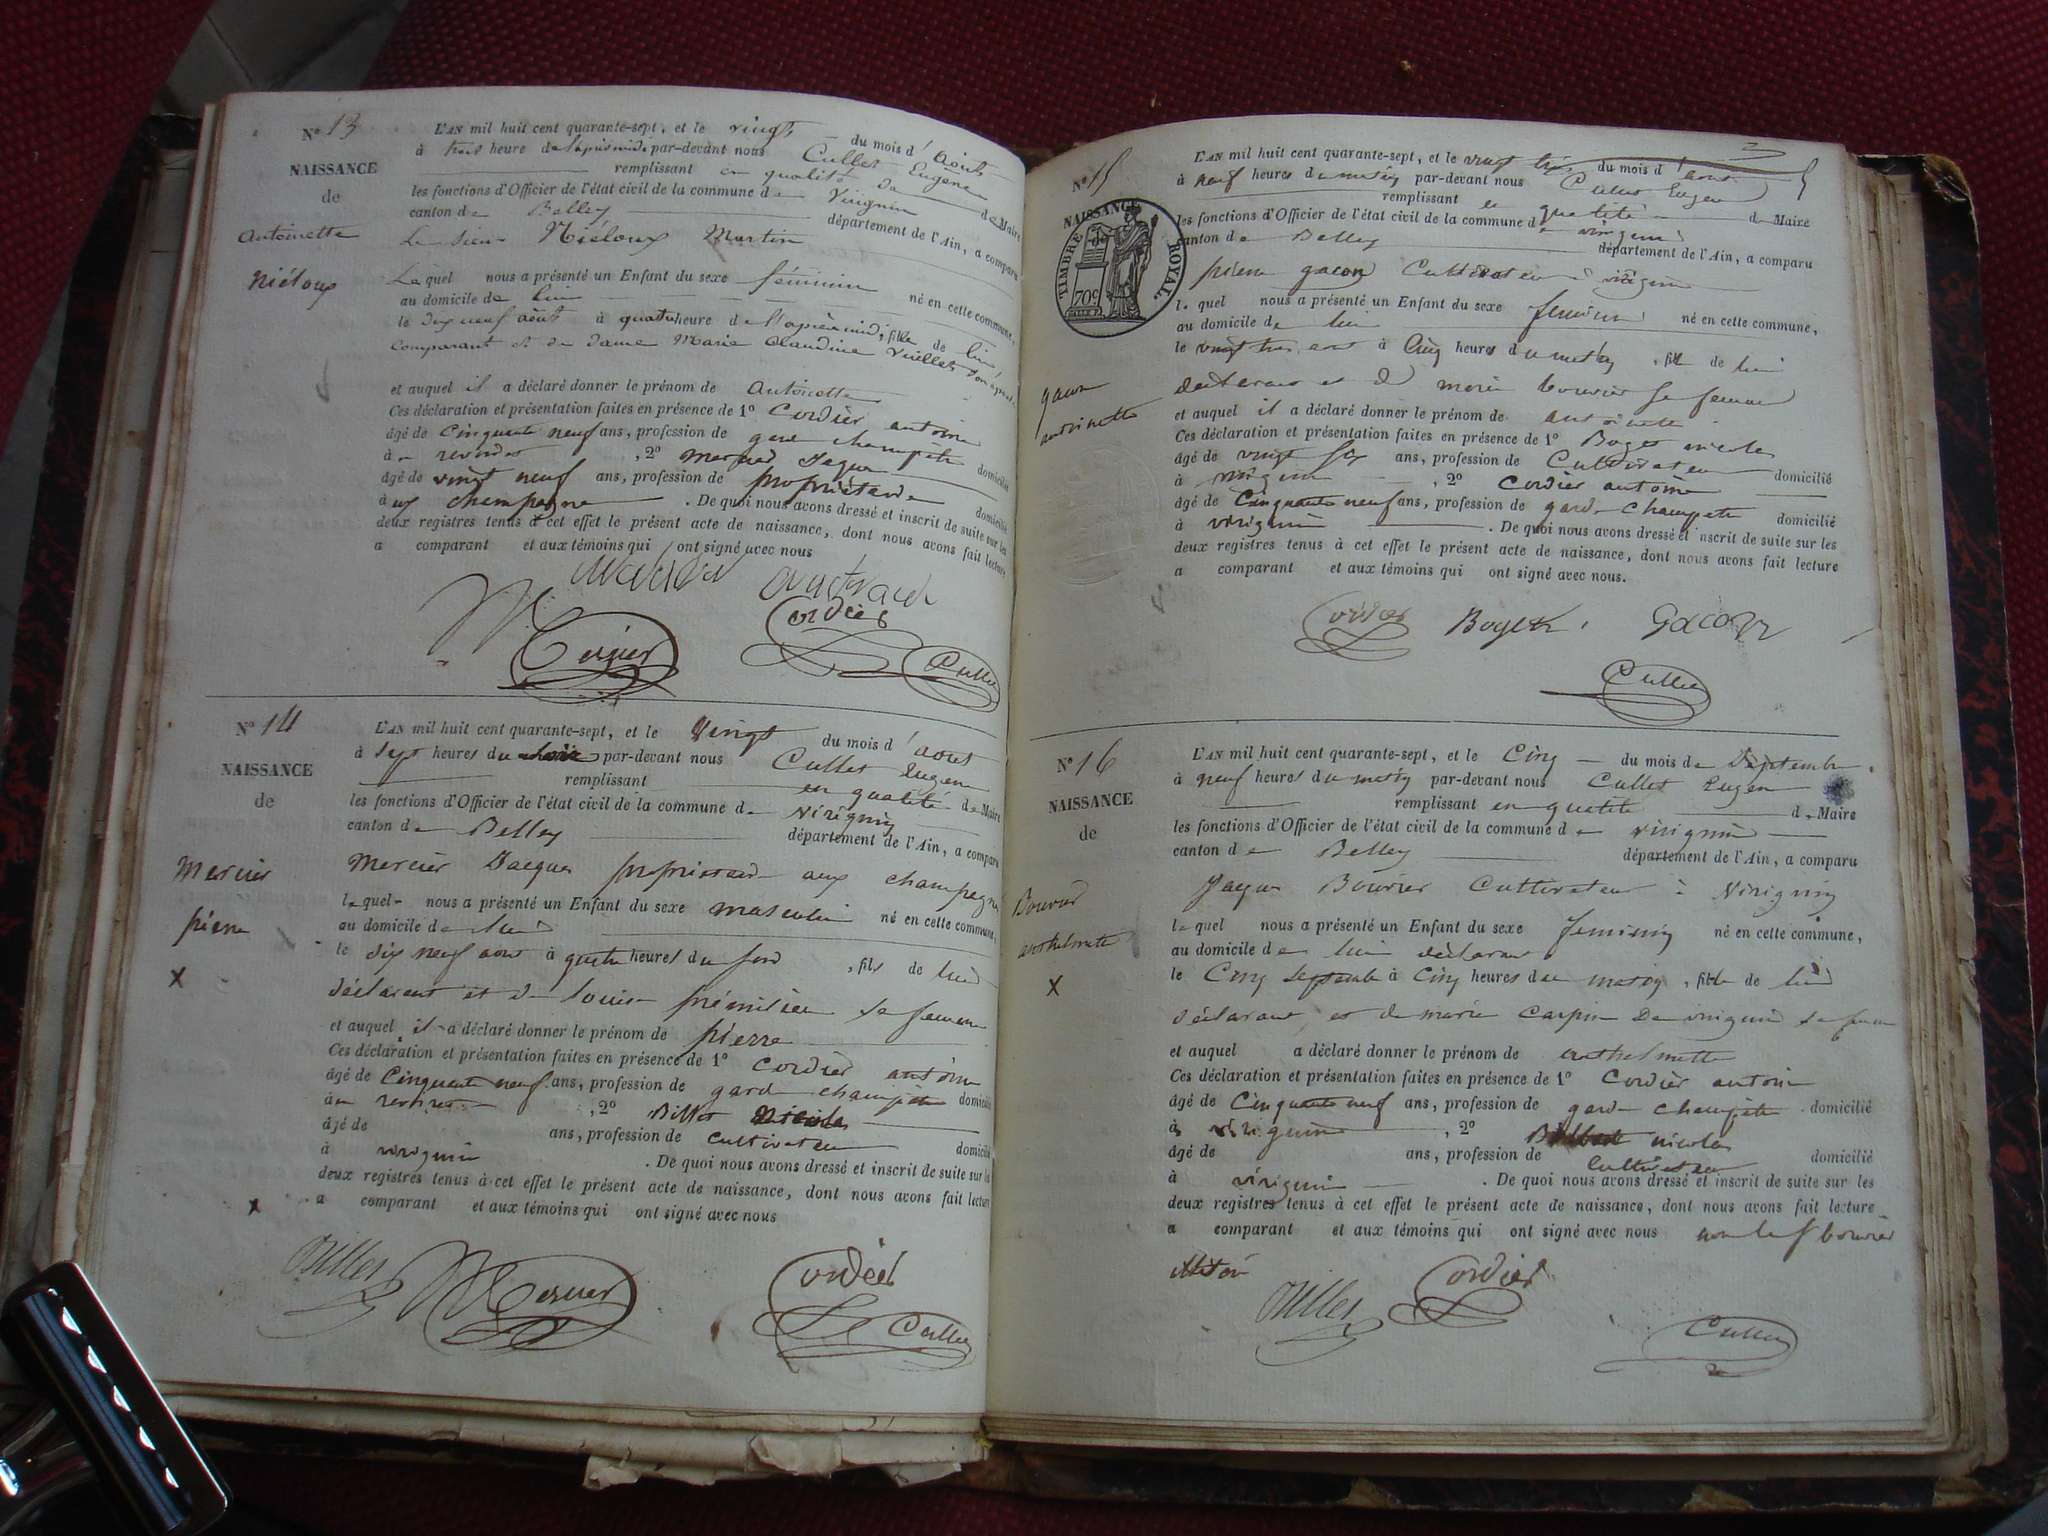 N° 13
NAISSANCE
de
Antoinette
Niéloux
L'AN mil huit cent quarante-sept, et le vingt du mois d'Août
à trois heure de l'après midi par-devant nous Cullet Eugène
remplissant en qualité de
les fonctions d'Officier de l'état civil de la commune de Virignin de Maire
canton de Belley département de l'Ain, a comparu
Le sieur Niéloux Martin
Le quel nous a présenté un Enfant du sexe féminin né en cette commune,
au domicile de lui
le dix neuf août à quatre heure de l'après midi, fille de lui
comparant et de dame Marie Claudine Viollet son épouse
et auquel il a déclaré donner le prénom de Antoinette
Ces déclaration et présentation faites en présence de 1° Cordier antoine
âgé de cinquante neuf ans, profession de garde champêtre domicilié
à , 2° Mercier Jaques
âgé de vingt neuf ans, profession de propriétaire domicilié
à champagne . De quoi nous avons dressé et inscrit de suite sur les
deux registres tenus à cet effet le présent acte de naissance, dont nous avons fait lecture
a comparant et aux témoins qui ont signé avec nous
Mercier Cordier Cullet
N° 14
NAISSANCE
de
Mercier
pierre
X
L'AN mil huit cent quarante-sept, et le Vingt du mois d'aout
à sept heures du par-devant nous Cullet Eugène
remplissant en qualité de Maire
les fonctions d'Officier de l'état civil de la commune de Virignin
canton de Belley département de l'Ain, a comparu
Mercier Jacques propriétaire aux champagne
le quel nous a présenté un Enfant du sexe masculin né en cette commune,
au domicile de lui
le dix neuf aout à quatre heures du soir , fils de lui
déclarant et de louise sa femme
et auquel il a déclaré donner le prénom de pierre
Ces déclaration et présentation faites en présence de 1° Cordier antoine
âgé de Cinquante neuf ans, profession de garde champêtre domicilié
à , 2° Billet Nicolas
âgé de ans, profession de cultivateur domicilié
à virignin . De quoi nous avons dressé et inscrit de suite sur les
deux registres tenus à cet effet le présent acte de naissance, dont nous avons fait lecture
X
a comparant et aux témoins qui ont signé avec nous
Billet Mercier Cordier Cullet
N° 15
NAISSANCE
TIMBRE ROYAL
de
70c
gacon
antoinette
L'AN mil huit cent quarante-sept, et le vingt trois du mois d'aout
à neuf heures du matin par-devant nous Cullet Eugène
remplissant en qualité de Maire
les fonctions d'Officier de l'état civil de la commune de virignin
canton de Belley département de l'Ain, a comparu
pierre gacon Cultivateur à virignin
le quel nous a présenté un Enfant du sexe feminin né en cette commune,
au domicile de lui
le vingt trois aout à Cinq heures du matin , fille de lui
declarant et de marie bouvier sa femme
et auquel il a déclaré donner le prénom de antoinette
Ces déclaration et présentation faites en présence de 1° Boget nicolas
âgé de vingt six ans, profession de Cultivateur domicilié
à virignin , 2° Cordier antoine
âgé de Cinquante neuf ans, profession de garde champêtre domicilié
à virignin . De quoi nous avons dressé et inscrit de suite sur les
deux registres tenus à cet effet le présent acte de naissance, dont nous avons fait lecture
a comparant et aux témoins qui ont signé avec nous.
Cordier Boget Gacon
Cullet
N° 16
NAISSANCE
de
Bouvier
anthelmette
X
L'AN mil huit cent quarante-sept, et le Cinq du mois de Septembre
à neuf heures du matin par-devant nous Cullet Eugène
remplissant en qualité de Maire
les fonctions d'Officier de l'état civil de la commune de virignin
canton de Belley département de l'Ain, a comparu
Jaques Bouvier Cultivateur à Virignin
le quel nous a présenté un Enfant du sexe feminin né en cette commune,
au domicile de lui déclarant
le Cinq septembre à Cinq heures du matin , fille de lui
déclarant, et de marie Carpin de virignin sa femme
et auquel a déclaré donner le prénom de anthelmette
Ces déclaration et présentation faites en présence de 1° Cordier antoine
âgé de Cinquante neuf ans, profession de garde champêtre domicilié
à virignin , 2° nicolas
âgé de ans, profession de Cultivateur domicilié
à virignin . De quoi nous avons dressé et inscrit de suite sur les
deux registres tenus à cet effet le présent acte de naissance, dont nous avons fait lecture
a comparant et aux témoins qui ont signé avec nous bouvier
Billet Cordier
Cullet